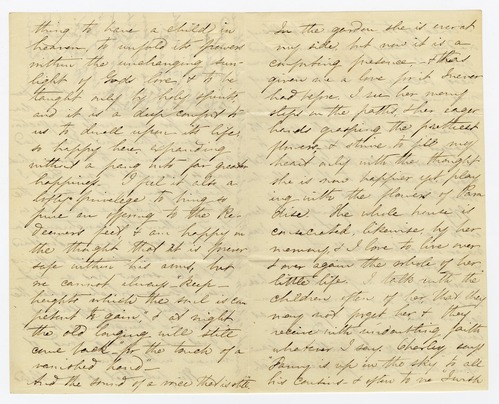 thing to have a child in
heaven, to unfold its powers
within the unchanging sun-
light of Gods love, & to be
taught only of holy spirits,
and it is a deep comfort to
us to dwell upon its life
so happy here, expanding
without a pang into far greater
happiness. I feel it also a
lofty privilege to bring so
pure an offering to the Re-
deemers feet, & am happy in
the thought that it is forever
safe within his arms, but
we cannot always keep
heights which the soul is com
petent to gain, & at night
the old longing will still
come back "for the touch of a
vanished hand—
And the sound of a voice that is still
In the garden she is ever at
my side, but now it is a
comforting presence— & has
given me a love for it I never
had before. I see her merry
steps in the paths & her eager
hands grasping the prettiest
flowers & strive to fill my
heart only with the thought
she is now happier yet, play
ing with the flowers of Para
dise. The whole house is
consecrated likewise by her
memory, & I love to live over
& over again the whole of her
little life. I talk with the
children often of her, that they
may not forget her & they
receive with undoubting faith
whatever I say. Charley says
"Fanny is up in the sky" to all
his cousins & often to me I wish